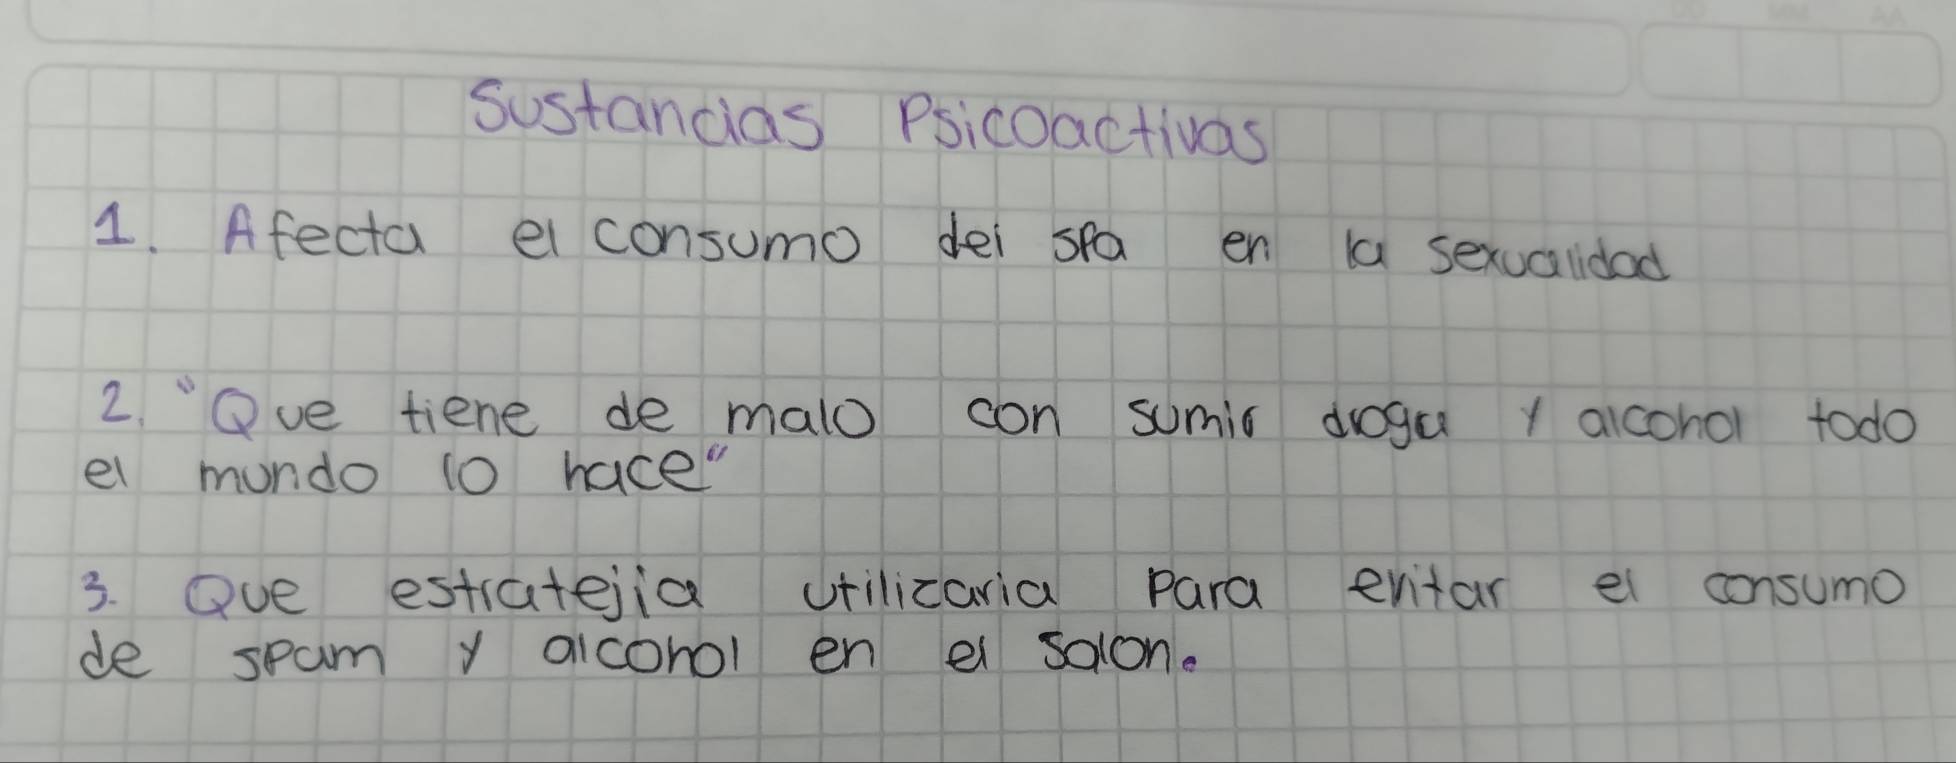 Sustancias Psicoactivas
1. Afecta el consumo del spa en la sexualidad
2. "Que tiene de malo con sumir droga y alcohol todo
el mundo lo hace"
3. Que estratejia utilizaria para evitar el consumo
de spam y alcohol en el salon.